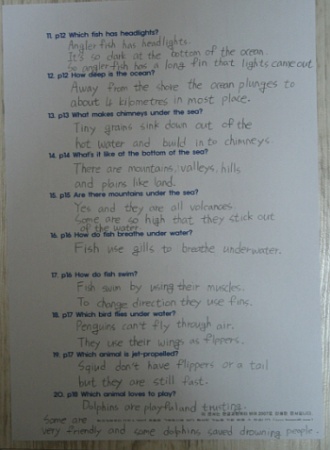 11. p12 Which fish has headlights?
Angler fish has headlights.
It's so dark at the bottom of the ocean
so anglerfish has a long fin that lights came out
12. p12 How deep is the ocean?
Away from the shore the ocean plunges to
about 4 kilometres in most place.
13. p13 What makes chimneys under the sea?
Tiny grains sink down out of the
hot water and build into chimneys.
14. p14 What's it like at the bottom of the sea?
There are mountains, valleys, hills
and plains like land.
15. p15 Are there mountains under the sea?
Yes and they are all volcanoes.
Some are so high that they stick out
of the water.
16. p16 How do fish breathe under water?
Fish use gills to breathe underwater.
17. p16 How do fish swim?
Fish swim by using their muscles.
To change direction they use fins.
18. p17 Which bird flies under water?
Penguins can't fly through air.
They use their wings as flippers.
19. p17 Which animal is jet-propelled?
Squid don't have flippers or a tail
but they are still fast.
20. p18 Which animal loves to play?
Dolphins are playful and trusting.
Some are
very friendly and some dolphins saved drowning people.